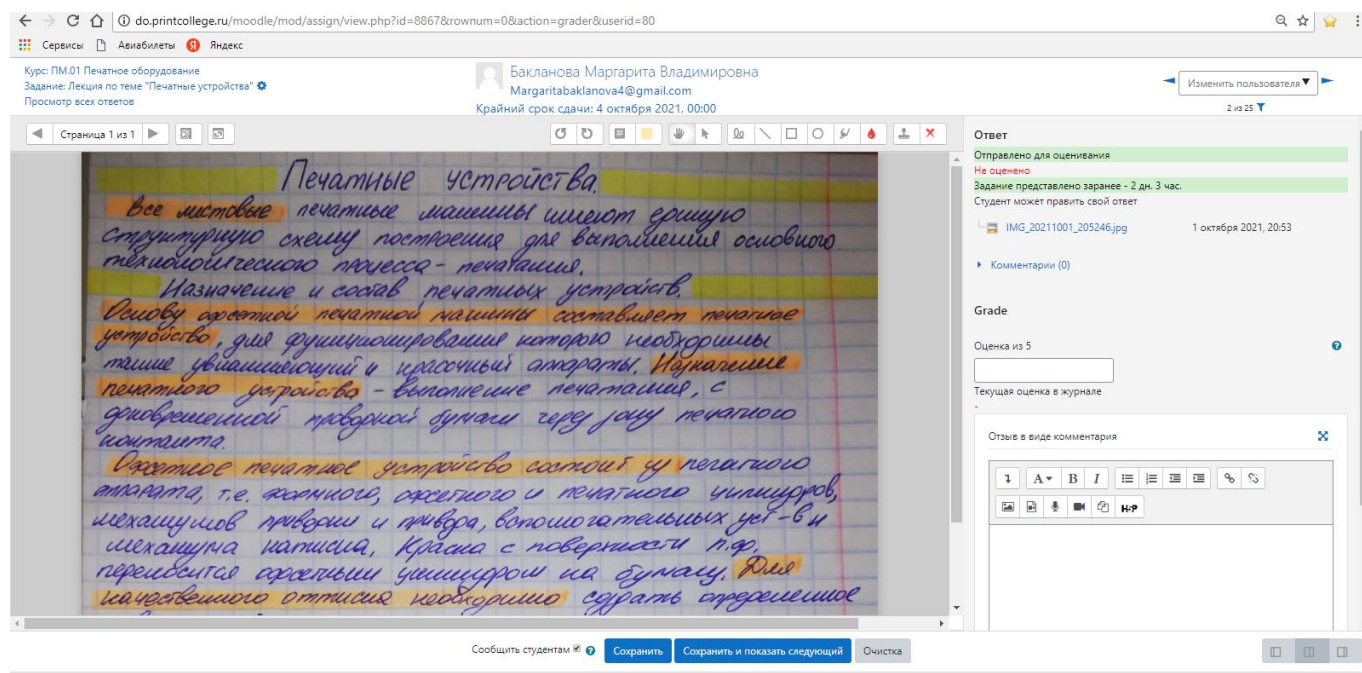 do.printcollege.ru/moodle/mod/assign/view.php?id=8867&rownum=0&action=grader&userid=80
Сервисы Авиабилеты Яндекс
Курс: ПМ.01 Печатное оборудование
Задание: Лекция по теме "Печатные устройства"
Просмотр всех ответов
Бакланова Маргарита Владимировна
Margaritabaklanova4@gmail.com
Крайний срок сдачи: 4 октября 2021, 00:00
Изменить пользователя
2 из 25
Страница 1 из 1
Печатные устройства.
Все листовые печатные машины имеют единую
структурную схему построения для выполнения основного
технологического процесса - печатания.
Назначение и состав печатных устройств.
Основу офсетной печатной машины составляет печатное
устройство, для функционирования которого необходимы
также увлажняющий и красочный аппараты. Назначение
печатного устройства - выполнение печатания, с
одновременной проводкой бумаги через зону печатного
контакта.
Офсетное печатное устройство состоит из печатного
аппарата, т.е. формного, офсетного и печатного цилиндров,
механизмов приводки и привода, вспомогательных уст-в и
механизма натиска. Краска с поверхности п.ф.
переносится офсетным цилиндром на бумагу. Для
качественного оттиска необходимо создать определенное
Ответ
Отправлено для оценивания
Не оценено
Задание представлено заранее - 2 дн. 3 час.
Студент может править свой ответ
IMG_20211001_205246.jpg 1 октября 2021, 20:53
Комментарии (0)
Grade
Оценка из 5
Текущая оценка в журнале
-
Отзыв в виде комментария
A B I
H-P
Сообщить студентам Сохранить Сохранить и показать следующий Очистка